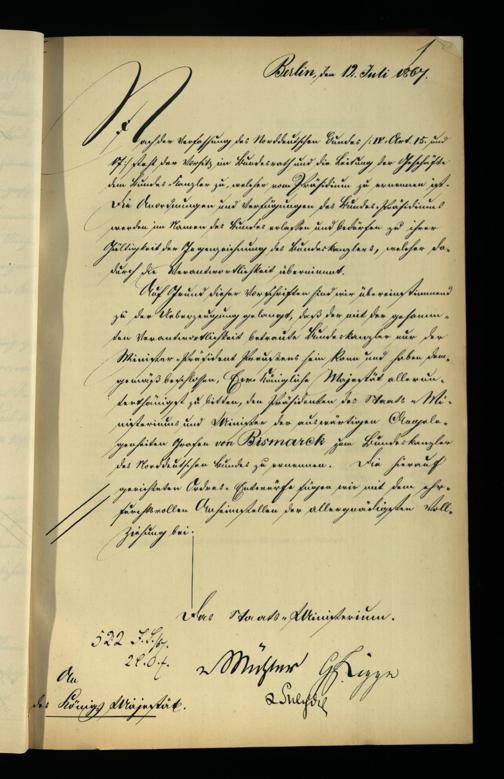 1
Berlin, den 12. Juli 1867.
Nach der Verfassung des Norddeutschen Bundes /: IV. Art. 15. und
17 :/ steht der Vorsitz im Bundesrath und die Leitung der Geschäfte
dem Bundes-Kanzler zu, welcher vom Präsidium zu ernennen ist.
Die Anordnungen und Verfügungen des Bundes-Präsidiums
werden im Namen des Bundes erlassen und bedürfen zu ihrer
Gültigkeit der Gegenzeichnung des Bundeskanzlers, welcher da-
durch die Verantwortlichkeit übernimmt.
Auf Grund dieser Vorschriften sind wir übereinstimmend
zu der Ueberzeugung gelangt, daß der mit der gesamm-
ten Verantwortlichkeit betraute Bundeskanzler nur der
Minister-Präsident Preußens sein kann und haben dem-
gemäß beschlossen, Eure Königliche Majestät allerun-
terthänigst zu bitten, den Präsidenten des Staats-Mi-
nisteriums und Minister der auswärtigen Angele-
genheiten Grafen von Bismarck zum Bundeskanzler
des Norddeutschen Bundes zu ernennen. Die hierauf
gerichteten Ordres-Entwürfe fügen wir mit dem ehr-
furchtsvollen Anheimstellen der allergnädigsten Voll-
ziehung bei.
Das Staats-Ministerium.
522
v Mühler
v Selchow
An
des Königs Majestät.